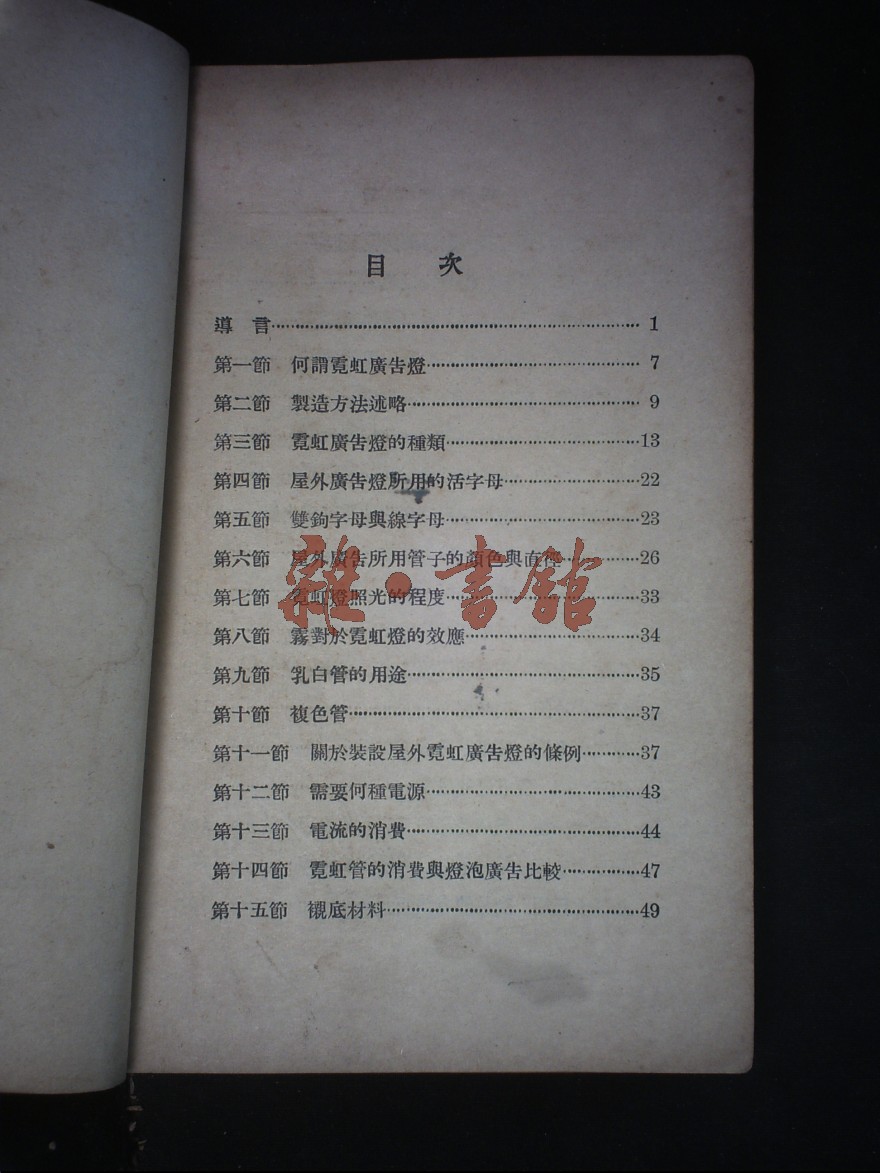 目次
導言 1
第一節 何謂霓虹廣告燈 7
第二節 製造方法述略 9
第三節 霓虹廣告燈的種類 13
第四節 屋外廣告燈所用的活字母 22
第五節 雙鉤字母與線字母 23
第六節 屋外廣告所用管子的顏色與直徑 26
第七節 霓虹燈照光的程度 33
雜·書館
第八節 霧對於霓虹燈的效應 34
第九節 乳白管的用途 35
第十節 複色管 37
第十一節 關於裝設屋外霓虹廣告燈的條例 37
第十二節 需要何種電源 43
第十三節 電流的消費 44
第十四節 霓虹管的消費與燈泡廣告比較 47
第十五節 襯底材料 49